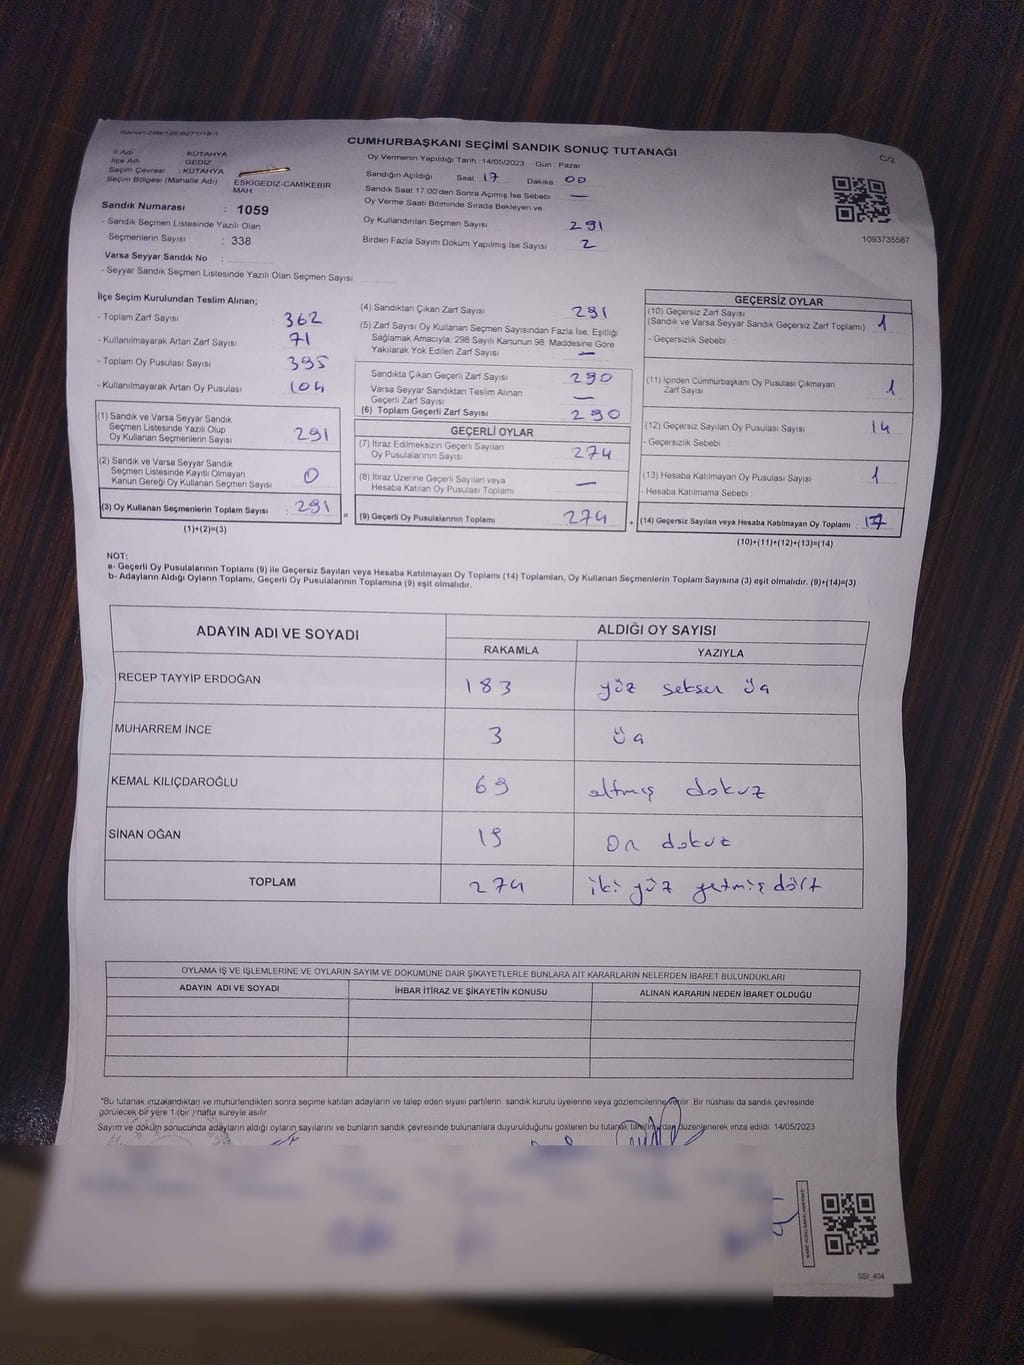 Kanun 298/105/6271/18-1
CUMHURBAŞKANI SEÇİMİ SANDIK SONUÇ TUTANAĞI
C/2
İl Adı : KÜTAHYA
İlçe Adı : GEDİZ
Seçim Çevresi : KÜTAHYA
Seçim Bölgesi (Mahalle Adı) ESKİGEDİZ-CAMİKEBİR
MAH
Sandık Numarası : 1059
- Sandık Seçmen Listesinde Yazılı Olan
Seçmenlerin Sayısı : 338
Varsa Seyyar Sandık No :
- Seyyar Sandık Seçmen Listesinde Yazılı Olan Seçmen Sayısı
Oy Vermenin Yapıldığı Tarih : 14/05/2023 Gün : Pazar
Sandığın Açıldığı Saat 17 Dakika 00
Sandık Saat 17:00'den Sonra Açımış İse Sebebi —
Oy Verme Saati Bitiminde Sırada Bekleyen ve
Oy Kullandırılan Seçmen Sayısı 291
Birden Fazla Sayım Döküm Yapılmış İse Sayısı 2
1093735587
İlçe Seçim Kurulundan Teslim Alınan;
- Toplam Zarf Sayısı 362
- Kullanılmayarak Artan Zarf Sayısı 71
- Toplam Oy Pusulası Sayısı 395
- Kullanılmayarak Artan Oy Pusulası 104
(1) Sandık ve Varsa Seyyar Sandık
Seçmen Listesinde Yazılı Olup
Oy Kullanan Seçmenlerin Sayısı : 291
(2) Sandık ve Varsa Seyyar Sandık
Seçmen Listesinde Kayıtlı Olmayan
Kanun Gereği Oy Kullanan Seçmen Sayısı : 0
(3) Oy Kullanan Seçmenlerin Toplam Sayısı : 291
(1)+(2)=(3)
(4) Sandıktan Çıkan Zarf Sayısı 291
(5) Zarf Sayısı Oy Kullanan Seçmen Sayısından Fazla İse, Eşitliği
Sağlamak Amacıyla; 298 Sayılı Kanunun 98. Maddesine Göre
Yakılarak Yok Edilen Zarf Sayısı —
Sandıkta Çıkan Geçerli Zarf Sayısı 290
Varsa Seyyar Sandıktan Teslim Alınan
Geçerli Zarf Sayısı —
(6) Toplam Geçerli Zarf Sayısı 290
GEÇERLİ OYLAR
(7) İtiraz Edilmeksizin Geçerli Sayılan
Oy Pusulalarının Sayısı 274
(8) İtiraz Üzerine Geçerli Sayılan veya
Hesaba Katılan Oy Pusulası Toplamı —
= (9) Geçerli Oy Pusulalarının Toplamı 274 +
GEÇERSİZ OYLAR
(10) Geçersiz Zarf Sayısı
(Sandık ve Varsa Seyyar Sandık Geçersiz Zarf Toplamı) : 1
- Geçersizlik Sebebi :
(11) İçinden Cumhurbaşkanı Oy Pusulası Çıkmayan
Zarf Sayısı 1
(12) Geçersiz Sayılan Oy Pusulası Sayısı 14
- Geçersizlik Sebebi :
(13) Hesaba Katılmayan Oy Pusulası Sayısı 1
- Hesaba Katılmama Sebebi :
(14) Geçersiz Sayılan veya Hesaba Katılmayan Oy Toplamı : 17
(10)+(11)+(12)+(13)=(14)
NOT:
a- Geçerli Oy Pusulalarının Toplamı (9) ile Geçersiz Sayılan veya Hesaba Katılmayan Oy Toplamı (14) Toplamları, Oy Kullanan Seçmenlerin Toplam Sayısına (3) eşit olmalıdır. (9)+(14)=(3)
b- Adayların Aldığı Oyların Toplamı, Geçerli Oy Pusulalarının Toplamına (9) eşit olmalıdır.
ADAYIN ADI VE SOYADI
ALDIĞI OY SAYISI
RAKAMLA
YAZIYLA
RECEP TAYYİP ERDOĞAN 183 yüz seksen üç
MUHARREM İNCE 3 üç
KEMAL KILIÇDAROĞLU 69 altmış dokuz
SİNAN OĞAN 19 on dokuz
TOPLAM 274 iki yüz yetmiş dört
OYLAMA İŞ VE İŞLEMLERİNE VE OYLARIN SAYIM VE DÖKÜMÜNE DAİR ŞİKAYETLERLE BUNLARA AİT KARARLARIN NELERDEN İBARET BULUNDUKLARI
ADAYIN ADI VE SOYADI
İHBAR İTİRAZ VE ŞİKAYETİN KONUSU
ALINAN KARARIN NEDEN İBARET OLDUĞU
*Bu tutanak imzalandıktan ve mühürlendikten sonra seçime katılan adayların ve talep eden siyasi partilerin sandık kurulu üyelerine veya gözlemcilerine verilir. Bir nüshası da sandık çevresinde
görülecek bir yere 1 (bir ) hafta süreyle asılır.
Sayım ve döküm sonucunda adayların aldığı oyların sayılarını ve bunların sandık çevresinde bulunanlara duyurulduğunu gösteren bu tutanak tarafımızdan düzenlenerek imza edildi. 14/05/2023
SSİ_404